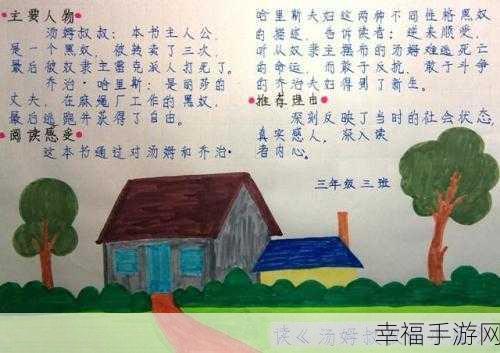 主要人物
汤姆叔叔：本书主人公，
是一个黑奴，被转卖了三次，
最后被奴隶主雷克派人打死了。
乔治·哈里斯：是丽莎的
丈夫，在麻绳厂工作的黑奴，
最后逃跑并获得了自由。
阅读感受
这本书通过对汤姆和乔治·
哈里斯夫妇这两种不同性格黑奴
的描述，告诉读者：逆来顺受，
听从奴隶主摆布的汤姆难逃死亡
的命运，而敢于反抗，敢于斗争
的乔治夫妇得到了新生。
推荐理由
深刻反映了当时的社会状态，
真实感人，深入读
者内心。
三年级 三班
读《汤姆叔
幸福手游网